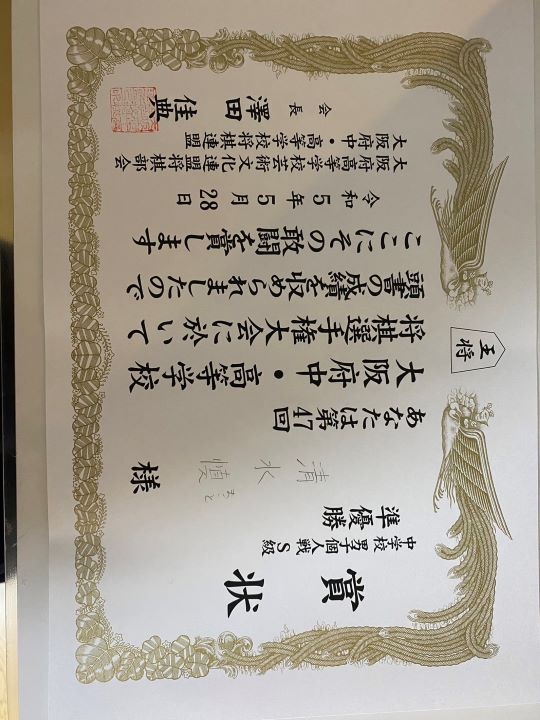 王将
賞状
中学校男子個人戦S級
準優勝
清水慎 様
まこと
あなたは第47回
大阪府中・高等学校
将棋選手権大会に於いて
頭書の成績を収められましたので
ここにその敢闘を賞します
令和5年5月28日
大阪府高等学校芸術文化連盟将棋部会
大阪府中・高等学校将棋連盟
会長 澤田佳典